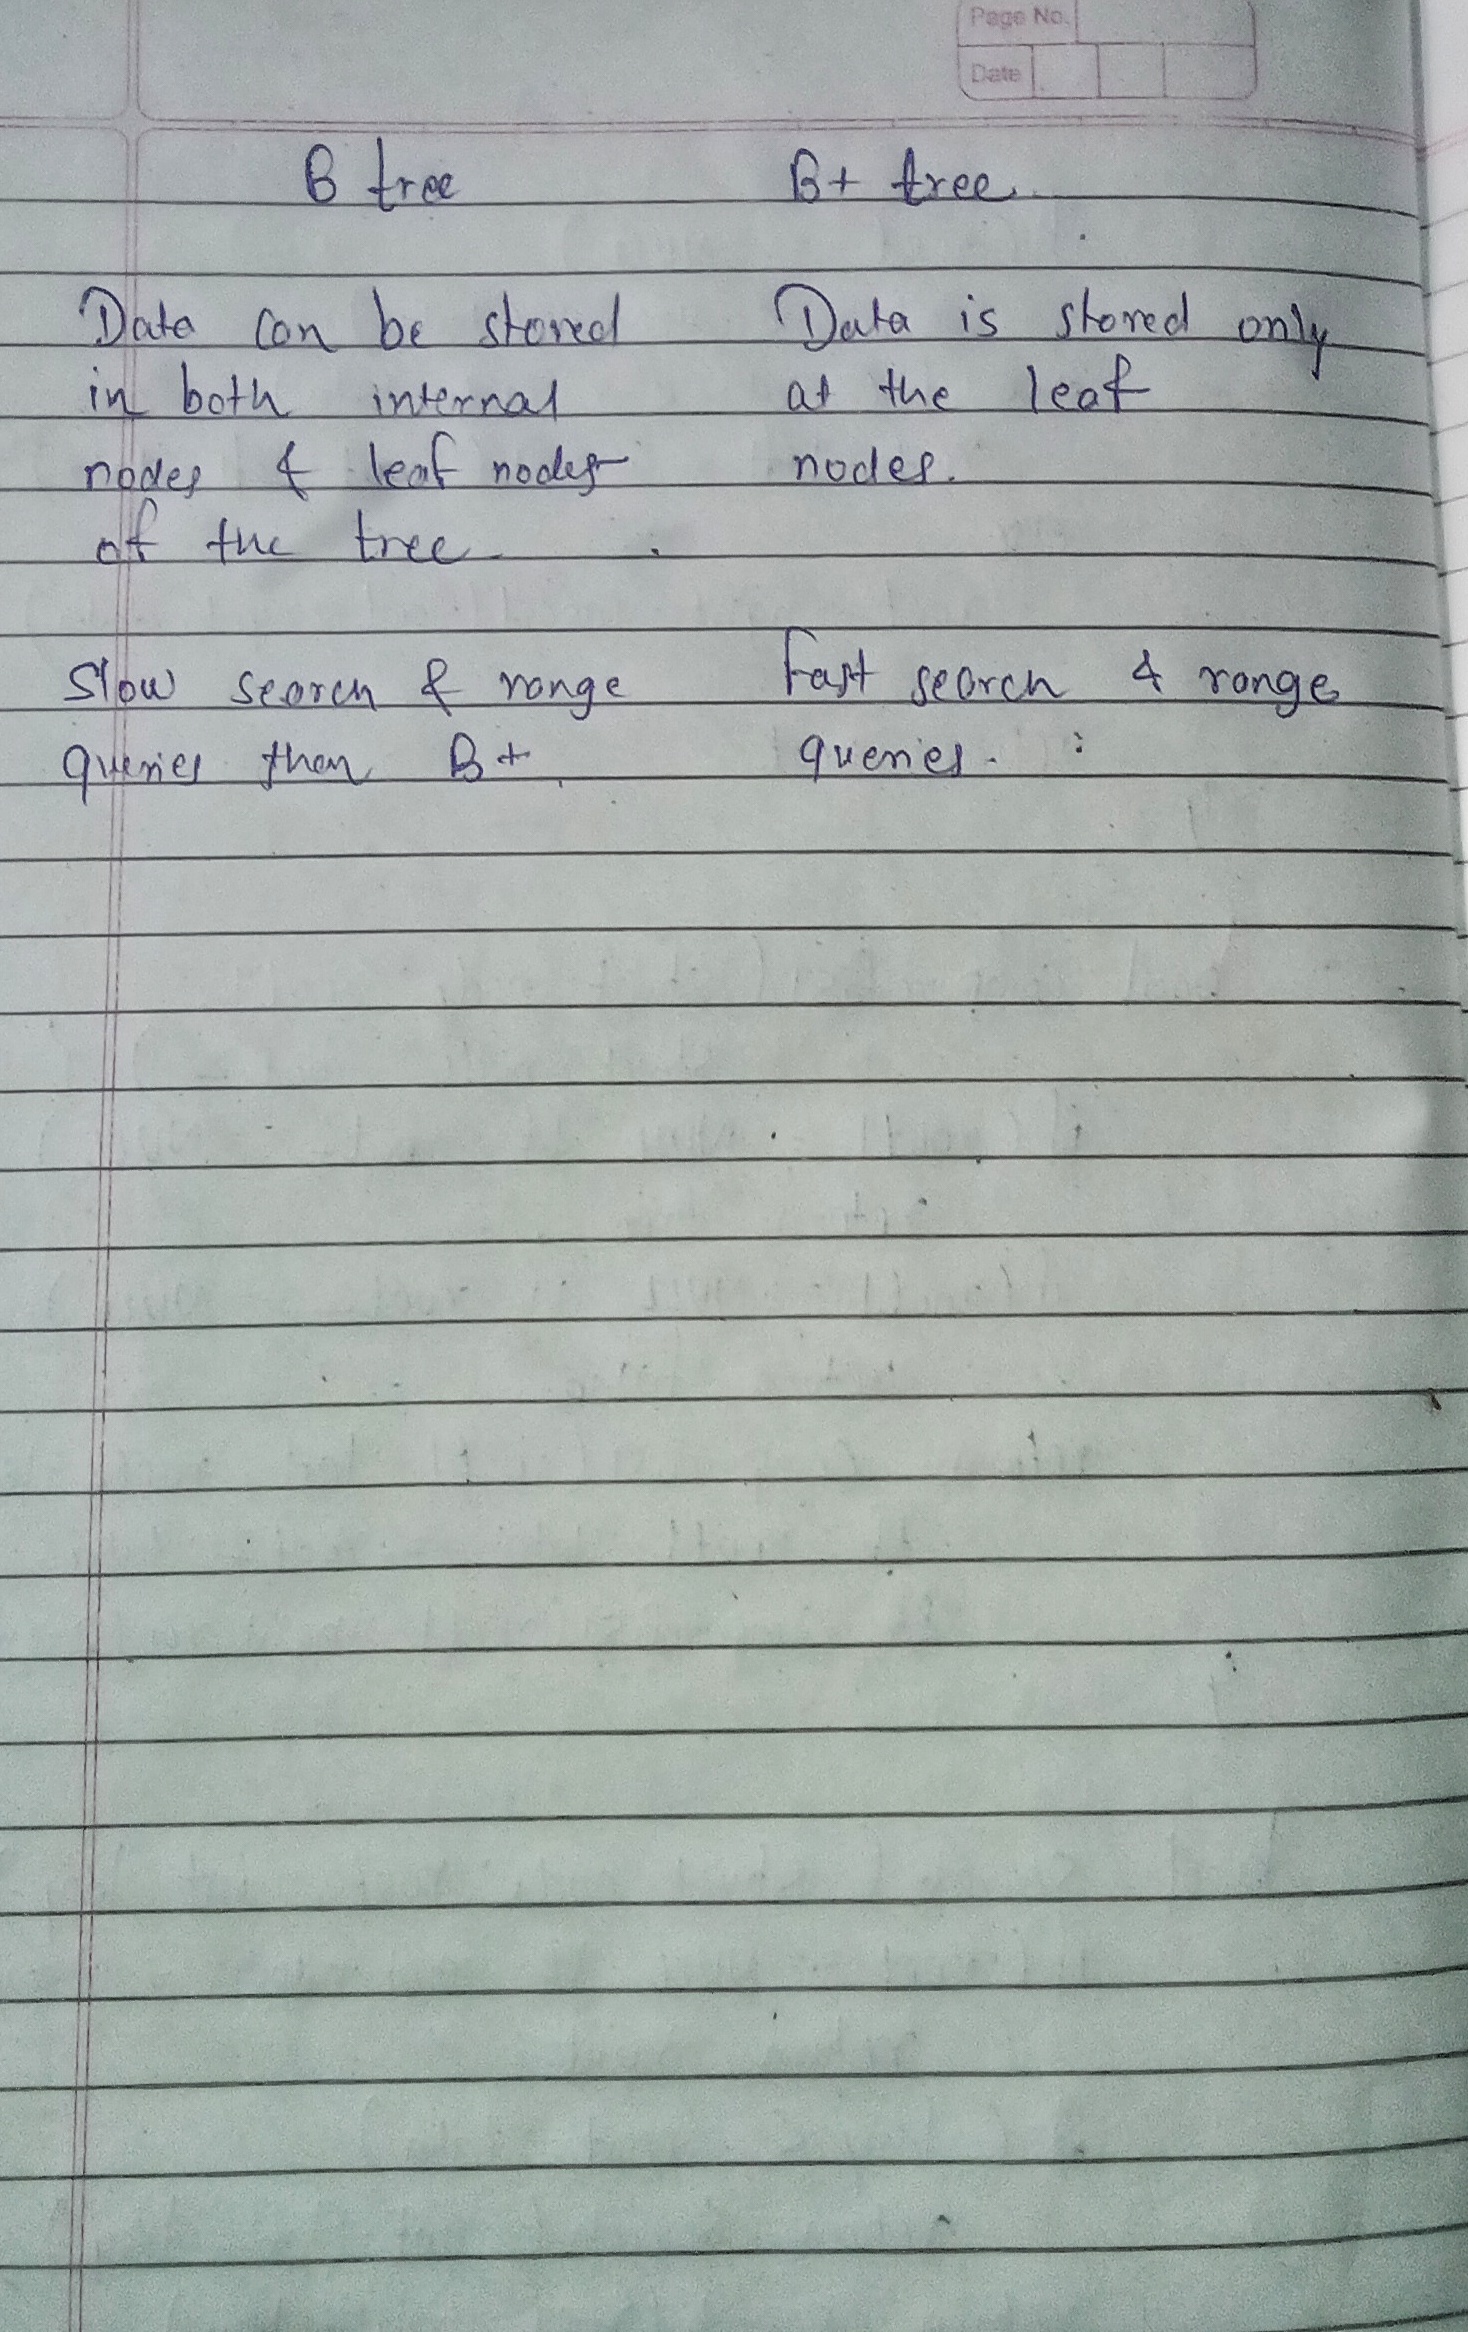 Page No.
Date
B tree
B+ tree
Data can be stored
in both internal
nodes & leaf nodes
of the tree
Data is stored only
at the leaf
nodes.
Slow search & range
queries than B+
Fast search & range
queries.